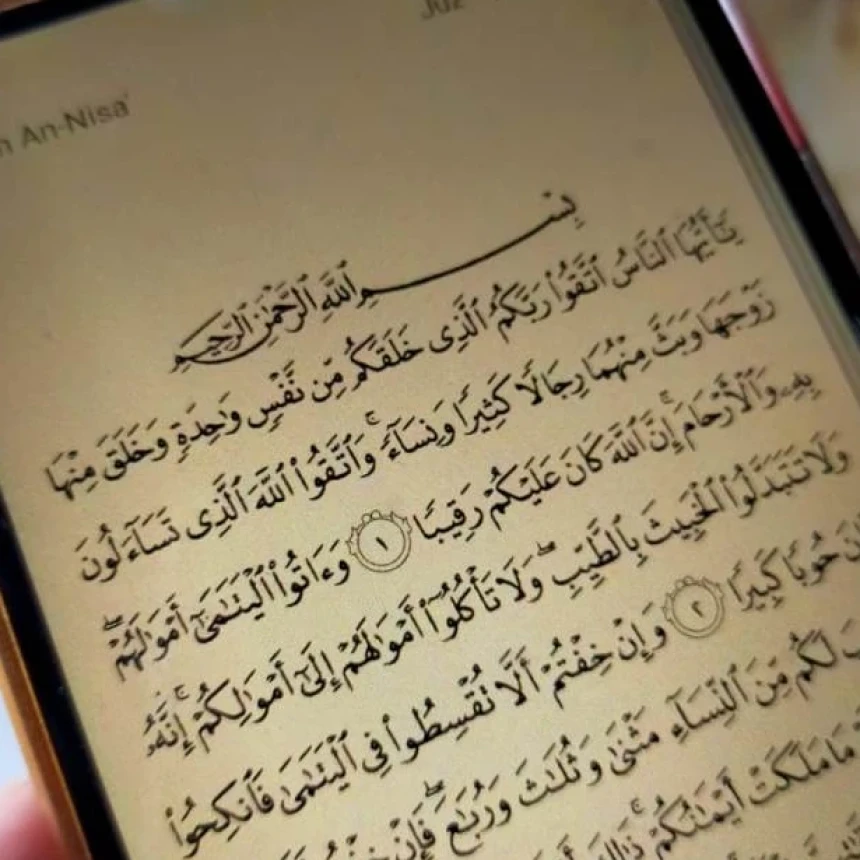 Juz
An-Nisa'
بِسْمِ ٱللَّهِ ٱلرَّحْمَٰنِ ٱلرَّحِيمِ
يَٰٓأَيُّهَا ٱلنَّاسُ ٱتَّقُوا۟ رَبَّكُمُ ٱلَّذِى خَلَقَكُم مِّن نَّفْسٍ وَٰحِدَةٍ وَخَلَقَ مِنْهَا
زَوْجَهَا وَبَثَّ مِنْهُمَا رِجَالًا كَثِيرًا وَنِسَآءً ۚ وَٱتَّقُوا۟ ٱللَّهَ ٱلَّذِى تَسَآءَلُونَ
بِهِۦ وَٱلْأَرْحَامَ ۚ إِنَّ ٱللَّهَ كَانَ عَلَيْكُمْ رَقِيبًا ١ وَءَاتُوا۟ ٱلْيَتَٰمَىٰٓ أَمْوَٰلَهُمْ ۖ
وَلَا تَتَبَدَّلُوا۟ ٱلْخَبِيثَ بِٱلطَّيِّبِ ۖ وَلَا تَأْكُلُوٓا۟ أَمْوَٰلَهُمْ إِلَىٰٓ أَمْوَٰلِكُمْ ۚ إِنَّهُۥ
حُوبًا كَبِيرًا ٢ وَإِنْ خِفْتُمْ أَلَّا تُقْسِطُوا۟ فِى ٱلْيَتَٰمَىٰ فَٱنكِحُوا۟
لَكُم مِّنَ ٱلنِّسَآءِ مَثْنَىٰ وَثُلَٰثَ وَرُبَٰعَ ۖ فَإِنْ
مَا مَلَكَتْ أَيْمَٰنُكُمْ ۚ